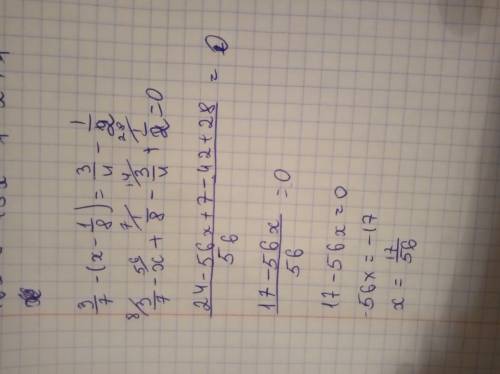 3/7 - (x - 1/8) = 3/4 - 1/2
8/ 3/7 - 56/ x + 7/ 1/8 - 14/ 3/4 + 28/ 1/2 = 0
(24 - 56x + 7 - 42 + 28)/56 = 0
(17 - 56x)/56 = 0
17 - 56x = 0
-56x = -17
x = 17/56